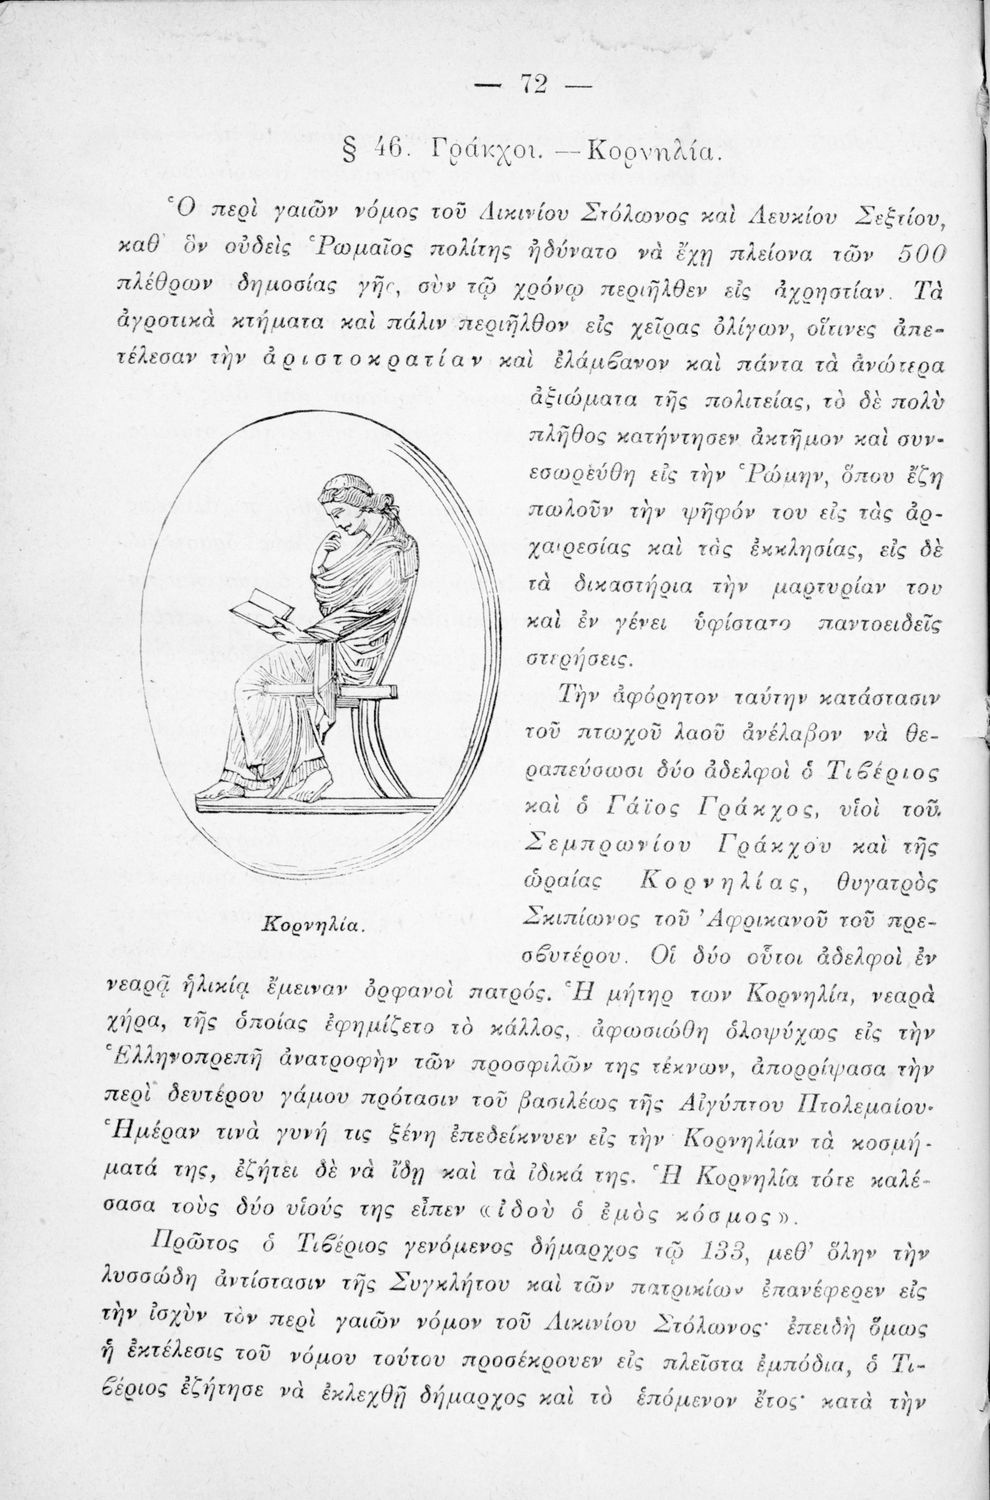 — 72 —
§ 46. Γράκχοι. — Κορνηλία.
Ὁ περὶ γαιῶν νόμος τοῦ Λικινίου Στόλωνος καὶ Λευκίου Σεξτίου,
καθ' ὃν οὐδεὶς Ῥωμαῖος πολίτης ἠδύνατο νὰ ἔχῃ πλείονα τῶν 500
πλέθρων δημοσίας γῆς, σὺν τῷ χρόνῳ περιῆλθεν εἰς ἀχρηστίαν. Τὰ
ἀγροτικὰ κτήματα καὶ πάλιν περιῆλθον εἰς χεῖρας ὀλίγων, οἵτινες ἀπε-
τέλεσαν τὴν ἀριστοκρατίαν καὶ ἐλάμβανον καὶ πάντα τὰ ἀνώτερα
ἀξιώματα τῆς πολιτείας, τὸ δὲ πολὺ
πλῆθος κατήντησεν ἀκτῆμον καὶ συν-
εσωρεύθη εἰς τὴν Ῥώμην, ὅπου ἔζη
πωλοῦν τὴν ψῆφόν του εἰς τὰς ἀρ-
χαιρεσίας καὶ τὰς ἐκκλησίας, εἰς δὲ
τὰ δικαστήρια τὴν μαρτυρίαν του
καὶ ἐν γένει ὑφίστατο παντοειδεῖς
στερήσεις.
Τὴν ἀφόρητον ταύτην κατάστασιν
τοῦ πτωχοῦ λαοῦ ἀνέλαβον νὰ θε-
ραπεύσωσι δύο ἀδελφοὶ ὁ Τιβέριος
καὶ ὁ Γάϊος Γράκχος, υἱοὶ τοῦ
Σεμπρωνίου Γράκχου καὶ τῆς
ὡραίας Κορνηλίας, θυγατρὸς
Σκιπίωνος τοῦ Ἀφρικανοῦ τοῦ πρε-
σβυτέρου. Οἱ δύο οὗτοι ἀδελφοὶ ἐν
Κορνηλία.
νεαρᾷ ἡλικίᾳ ἔμειναν ὀρφανοὶ πατρός. Ἡ μήτηρ των Κορνηλία, νεαρὰ
χήρα, τῆς ὁποίας ἐφημίζετο τὸ κάλλος, ἀφωσιώθη ὁλοψύχως εἰς τὴν
Ἑλληνοπρεπῆ ἀνατροφὴν τῶν προσφιλῶν της τέκνων, ἀπορρίψασα τὴν
περὶ δευτέρου γάμου πρότασιν τοῦ βασιλέως τῆς Αἰγύπτου Πτολεμαίου·
Ἡμέραν τινὰ γυνή τις ξένη ἐπεδείκνυεν εἰς τὴν Κορνηλίαν τὰ κοσμή-
ματά της, ἐζήτει δὲ νὰ ἴδῃ καὶ τὰ ἰδικά της. Ἡ Κορνηλία τότε καλέ-
σασα τοὺς δύο υἱούς της εἶπεν «ἰδοὺ ὁ ἐμὸς κόσμος».
Πρῶτος ὁ Τιβέριος γενόμενος δήμαρχος τῷ 133, μεθ' ὅλην τὴν
λυσσώδη ἀντίστασιν τῆς Συγκλήτου καὶ τῶν πατρικίων ἐπανέφερεν εἰς
τὴν ἰσχὺν τὸν περὶ γαιῶν νόμον τοῦ Λικινίου Στόλωνος· ἐπειδὴ ὅμως
ἡ ἐκτέλεσις τοῦ νόμου τούτου προσέκρουεν εἰς πλεῖστα ἐμπόδια, ὁ Τι-
βέριος ἐζήτησε νὰ ἐκλεχθῇ δήμαρχος καὶ τὸ ἑπόμενον ἔτος· κατὰ τὴν